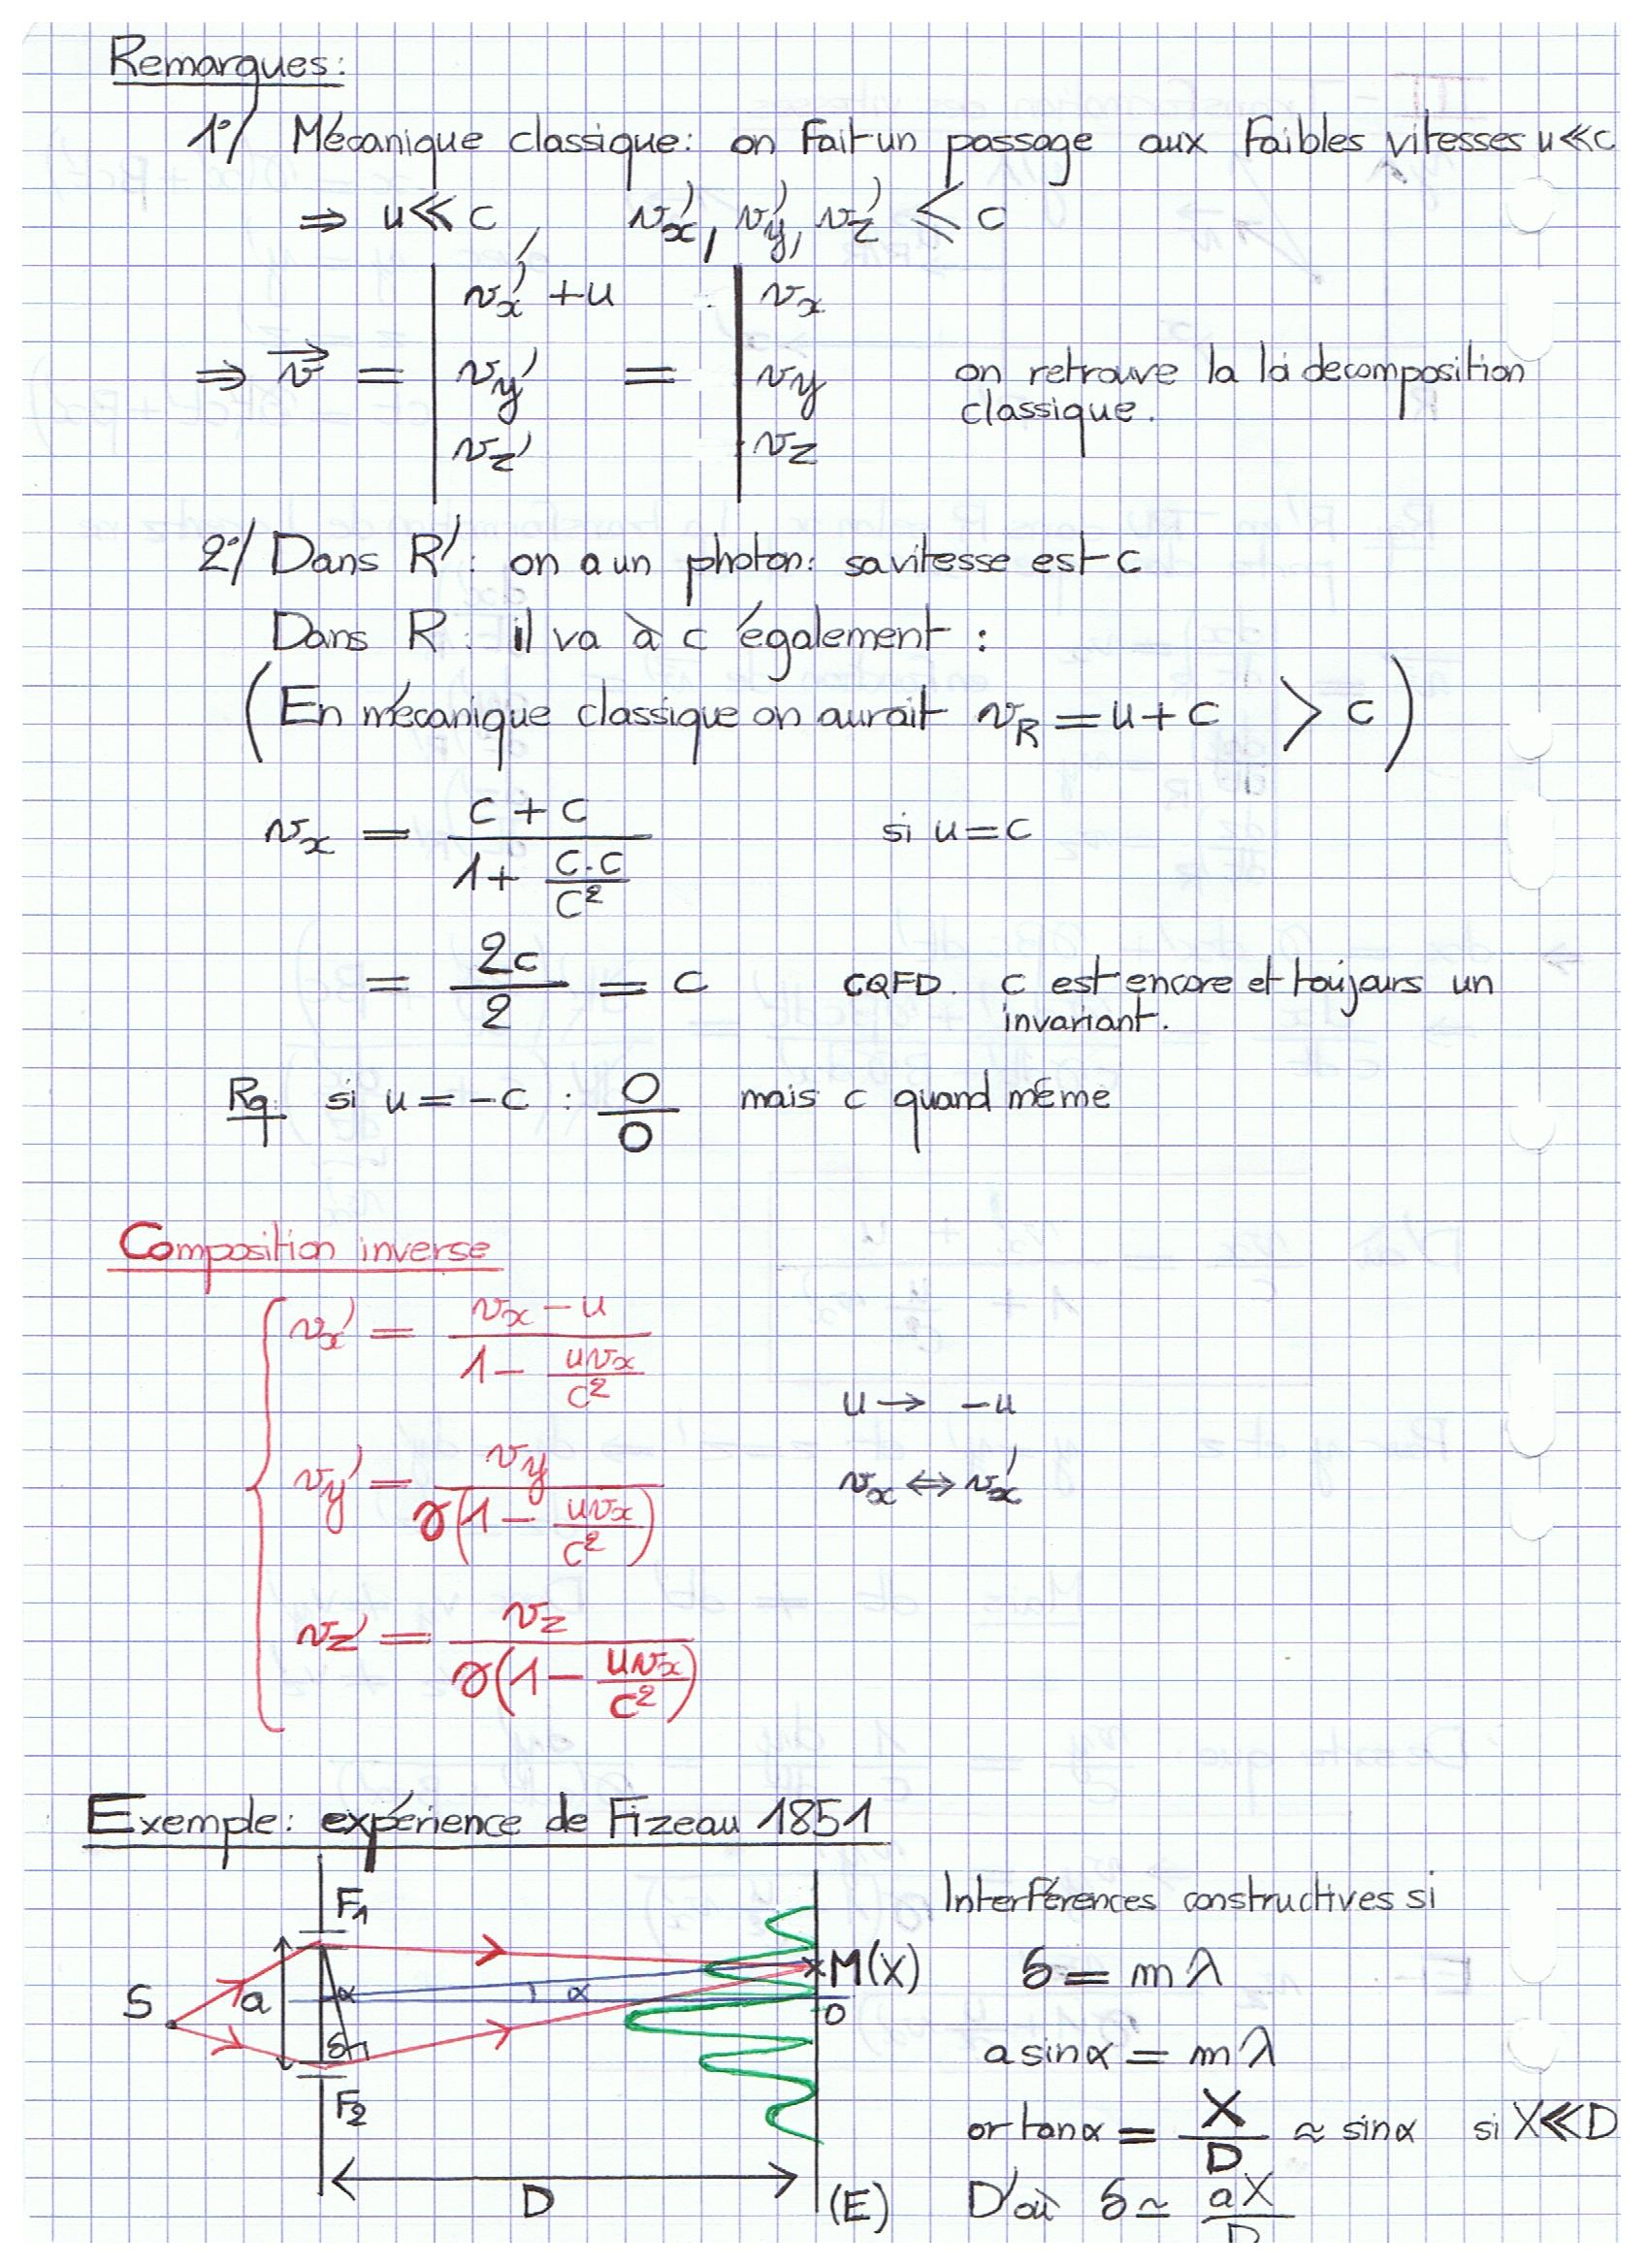 Remarques:
1°/ Mécanique classique: on Fait un passage aux Faibles vitesses u≪c
⇒ u≪c, vx', vy', vz' ⩽ c
⇒ v⃗ = | vx' + u | = | vx |
| vy' | | vy | on retrouve la loi decomposition
classique.
| vz' | | vz |
2°/ Dans R': on a un photon: sa vitesse est c
Dans R: il va à c également :
(En mécanique classique on aurait vR = u + c > c)
vx = (c + c) / (1 + (c.c)/c²) si u = c
= 2c/2 = c CQFD. c est encore et toujours un
invariant.
Rq si u = -c : 0/0 mais c quand même
Composition inverse
vx' = (vx - u) / (1 - uvx/c²)
u → -u
vy' = vy / γ(1 - uvx/c²) vx ⇔ vx'
vz' = vz / γ(1 - uvx/c²)
Exemple: expérience de Fizeau 1851
F1
S a α α M(X)
O
δ
F2
D (E)
Interférences constructives si
δ = mλ
a sinα = mλ
or tanα = X/D ≈ sinα si X≪D
D'où δ ≃ aX/D